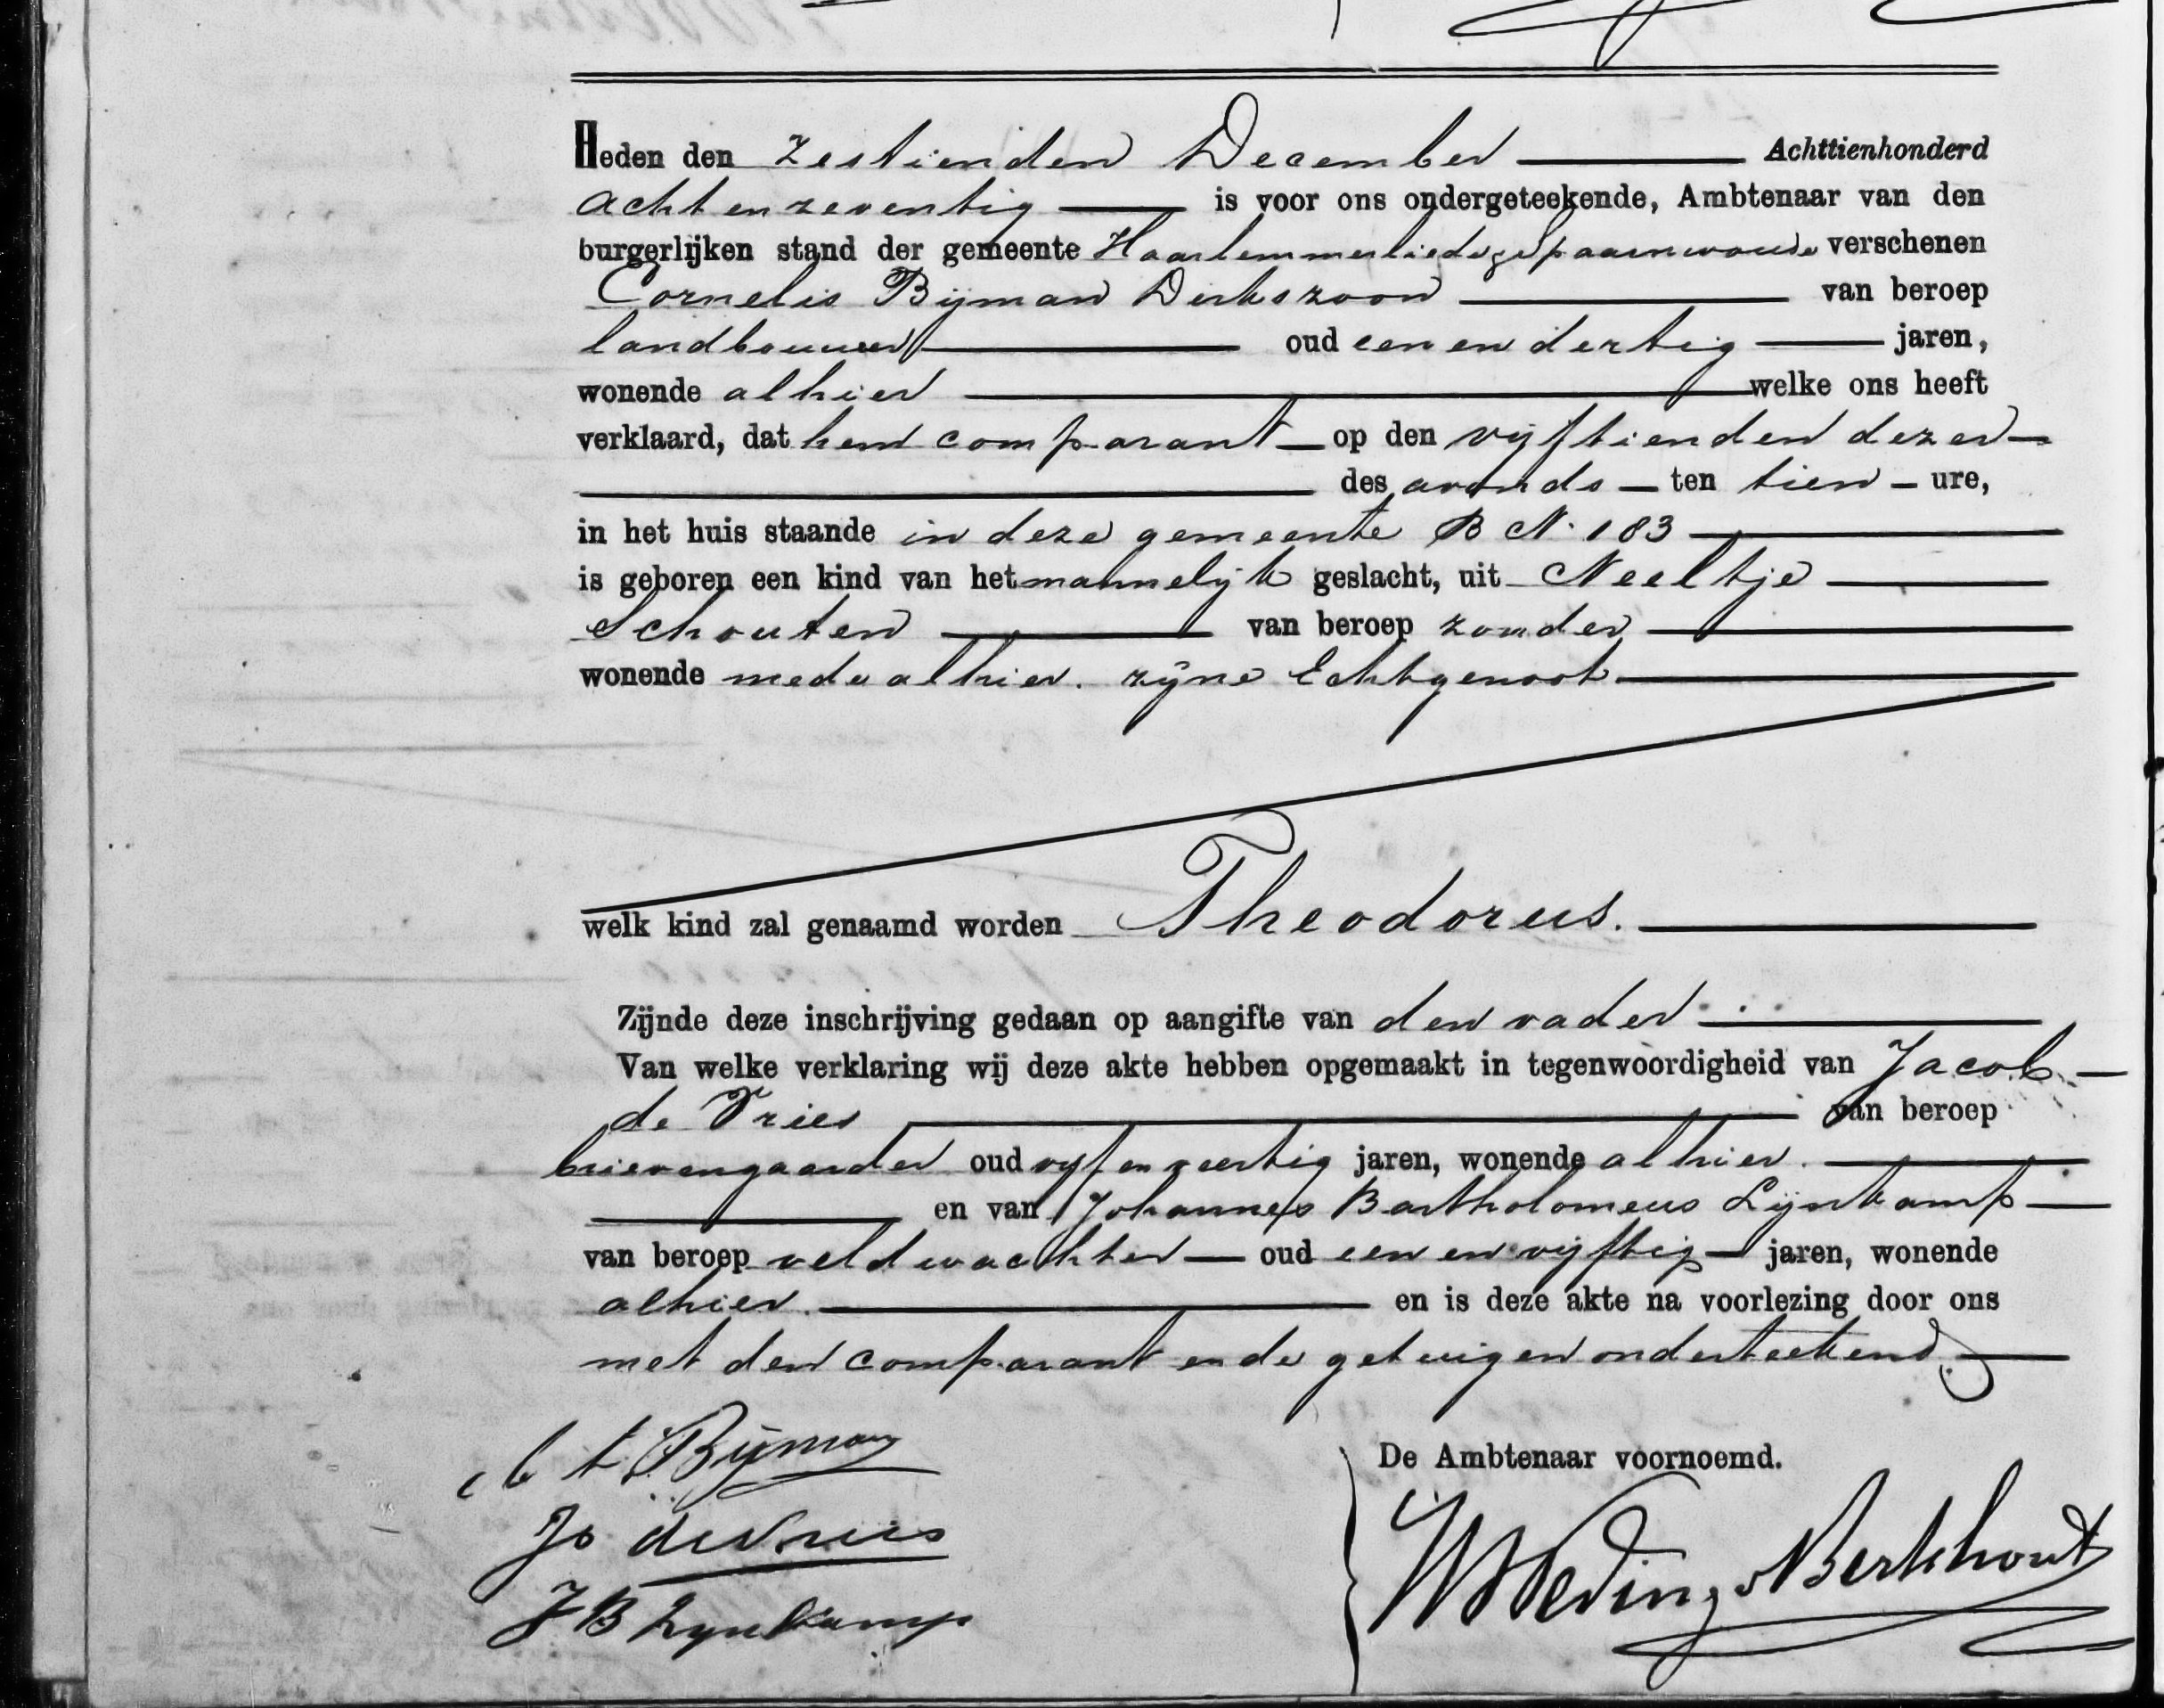 Heden den zestienden December Achttienhonderd
achtenzeventig is voor ons ondergeteekende, Ambtenaar van den
burgerlijken stand der gemeente Haarlemmerliede, verschenen
Cornelis Bijman Dirkszoon van beroep
landbouwer oud eenendertig jaren,
wonende alhier welke ons heeft
verklaard, dat hem comparant op den vijftienden dezer
des avonds ten tien ure,
in het huis staande in deze gemeente B N. 183
is geboren een kind van het mannelijk geslacht, uit Neeltje
Schouten van beroep zonder
wonende mede alhier. zijne Echtgenoot
welk kind zal genaamd worden Theodorus.
Zijnde deze inschrijving gedaan op aangifte van den vader
Van welke verklaring wij deze akte hebben opgemaakt in tegenwoordigheid van Jacob
de Vries van beroep
brievengaarder oud vijfenveertig jaren, wonende alhier.
en van Johannes Bartholomeus Lijnkamp
van beroep veldwachter oud eenenvijftig jaren, wonende
alhier. en is deze akte na voorlezing door ons
met den comparant en de getuigen onderteekend
Bijman
De Ambtenaar voornoemd.
Jb de Vries
J B Lynkamp
Teding v Berkhout